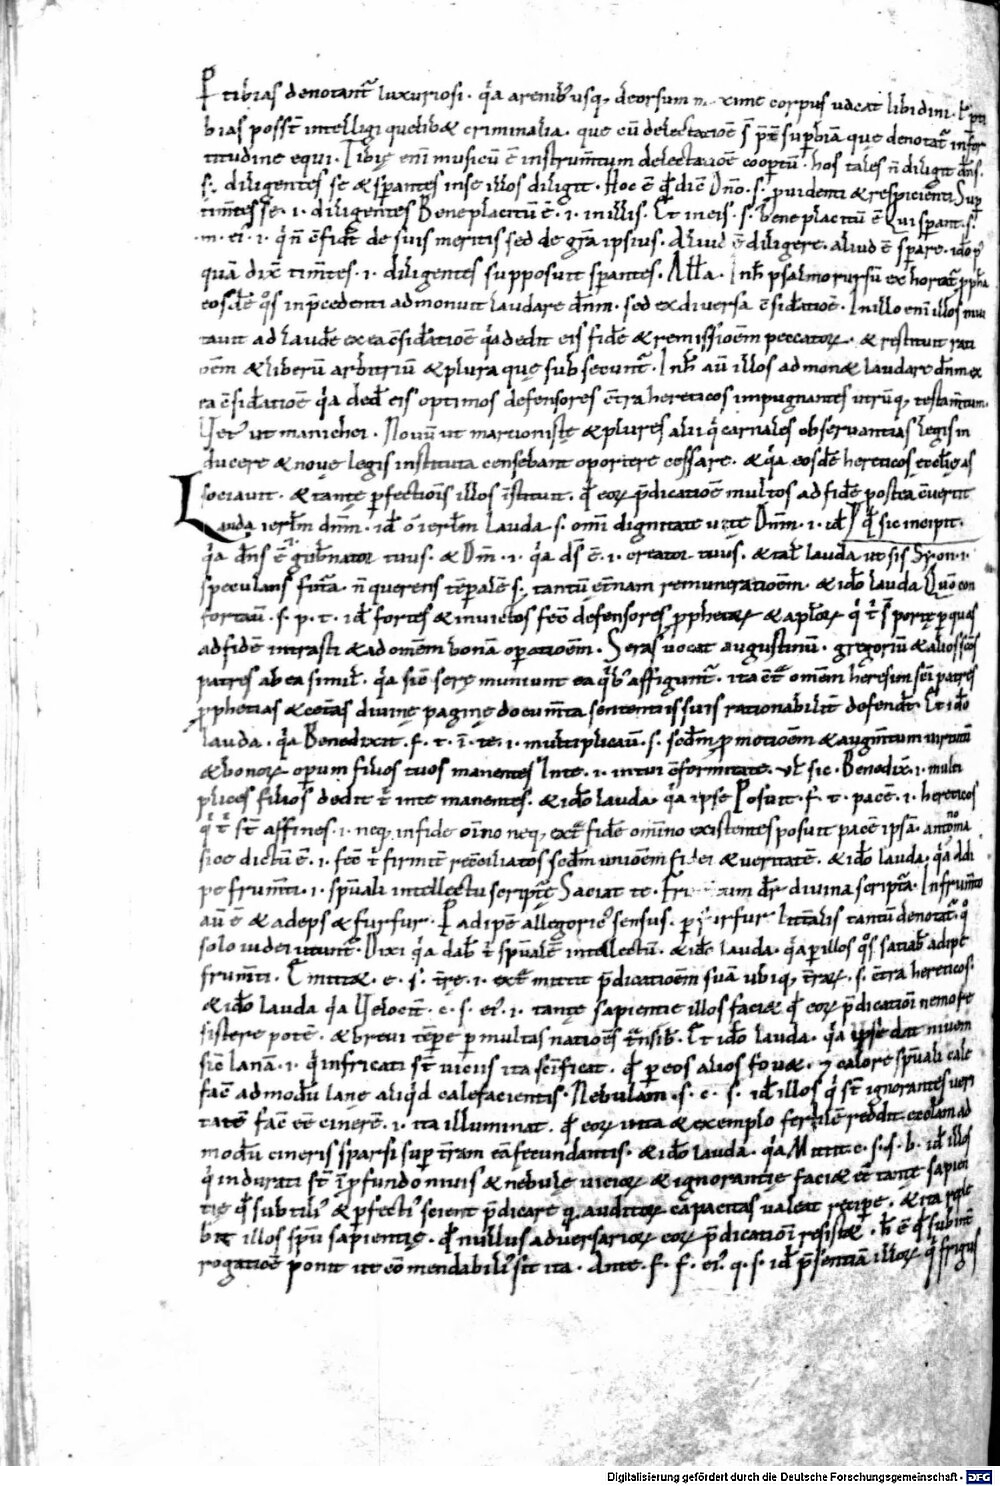 P tibias denotant᷑ luxuriosi. q̇a a renibꝰ usq; deorsum maxime corpus uacat libidini. ł p̱ ti
bias possт̄ intelligi quęlibꝫ criminalia. que cū delectatiōe s̄ p̱t̄ sup̱biam quę denotat᷑ in for
titudine equi. Tibię enī musicū ē instrum̄tum delectatiōe coop̱tū. hos tales n̄ diligit dn̄s.
s; diligentes se & sp̱antes in se illos diligit. Hoc ē qđ dic̄ Dn̄o .s. p̱uidenti & respicienti Sup̱
tim̄tes se .i. diligentes Beneplacitū ē .i. in illis. Et in eis .s. beneplacitū ē Qui sp̱ant .s.
m. ei. i. q̇ n̄ ɔfidt̄ de suis meritis sed de gr̄a ipsius. Aliud ē diligere. aliud ē sp̱are. ido p̱
quā dix̄ tim̄tes .i. diligentes supposuit sp̱antes. Alla. In h̄ psalmo rursū exhortat᷑ p̱pha
eosdē q̊s in p̄cedenti admonuit laudare dn̄m. sed ex diuersa ɔsid̄atiōe. In illo enī illos inui
tauit ad laudē ex ea ɔsid̄atiōe q̇a dedit eis fidē & remissiōem peccatoꝝ. & restituit rati
oēm & liberū arbitriū & plura quę subsecunt᷑. In h̄ aū illos admonꝫ laudare dn̄m ex
ea ɔsid̄atiōe q̇a ded̄ eis optimos defensores ɔtra hereticos impugnantes utrūq; testam̄tum.
Uet̄ ut manichei. Nouū ut marcionistę & plures alii q̇ carnales obseruantias legis in
ducere & nouę legis instituta censebant oportere cessare. & q̇a eosdē hereticos ęcclię as
sociauit. & tantę p̱fectiōis illos ɔstituit. qđ eoꝝ p̄dicatiōe multos ad fidē postea ɔuertit
Lauda ierl̄m dn̄m. id̄ o ierl̄m lauda .s. omī dignitate uitę Dn̄m .i. id̄ P̱ qđ sic incipit.
q̇a dn̄s ē .i. gub̄nator tuus. & Dm̄ .i. q̇a ds̄ ē .i. creator tuus. & tal̄ lauda ut sis Syon .i.
speculans fut̄a. n̄ querens tēp̱alē s; tantū et̄nam remuneratiōem. & ido lauda Quō con
fortauit .s. p. t. id̄ fortes & inuictos fec̄ defensores p̱phetaꝝ & ap̄loꝝ q̇ t̄ s̄ portę p̱ quas
ad fidē intrasti & ad omēm bonā op̱atiōem. Seras uocat augustinū. gregoriū & alios sc̄os
patres ab ea simil̄. q̇a sic̄ serę muniunt ea q̇bꝰ affigunt᷑. ita ēt omēm heresim sc̄i patres
p̱phetias & cet̄as diuinę paginę docum̄ta sententiis suis rationabilit̄ defendt̄. Et ido
lauda. q̇a Benedixit. f. t. i. te .i. multiplicauit .s. scdm̄ p̱motiōem & augm̄tum uirtutū
& bonoꝝ op̱um filios tuos manentes Inte .i. in tui ɔformitate. uł sic. Benedix̄ .i. multi
plices filios dedit t̄ in te manentes. & ido lauda. q̇a ipse Posuit. f. t. pacē .i. hereticos
q̇ t̄ st̄ affines .i. neq; in fide oīno neq; ext᷑ fidē omīno existentes posuit pacē ipsā. antonoma
sice dictū ē .i. fec̄ t̄ firmit̄ recɔciliatos scdm̄ unionem fidei & ueritatē. & ido lauda. q̇a adi
pe frum̄ti .i. sp̄uali intellectu scripturę Saciat te. Frumentum dr̄ diuina scriptā. In frum̄to
aū ē & adeps & furfur. P̱ adipē allegoricꝰ sensus. per furfur litt̄alis tantū denotat᷑. q̊
solo iudei utunt᷑. Dixi q̇a dab̄ t̄ sp̄ualē intellectū. & ido lauda. q̇a p̱ illos q̊s satiab̄ adipe
frum̄ti. Emittꝫ. e. s. t̄rę .i. ext᷑ mittit p̄dicatiōem suā ubiq; t̄raꝝ .s. ɔtra hereticos.
& ido lauda q̇a Uelocit̄. c. s. eiꝰ .i. tantę sapientię illos faciꝫ qđ eoꝝ p̄dicatiōi nemo re
sistere potē. & breui tēp̱e p̱ multas natiōes t̄nsib̄. Et ido lauda. q̇a ipse dat niuem
sic̄ lanā .i. q̇ infricati st̄ uiciis ita sc̄ificat. qđ p̱ eos alios fouꝫ. ⁊ calore sp̄uali cale
fac̄ ad modū lanę aliq̇d calefacientis. Nebulam .s. c. s. id̄ illos q̇ st̄ ignorantes ueri
tatē fac̄ eē cinerē .i. ita illuminat. qđ eoꝝ uita & exemplo fertilē reddit ecclam ad
modū cineris sparsi sup̱ t̄ram eā fecundantis. & ido lauda. q̇a Mittit. c. s. s. b. id̄ illos
q̇ indurati st̄ ī p̱fundo niuis & nebulę uicioꝝ & ignorantię faciꝫ eē tantę sapien
tię qđ subtilꝰ & p̱fectiꝰ scient p̄dicare quā auditoꝝ capacitas ualeat recip̱e. & ita reple
bit illos sp̄u sapientię. qđ nullus aduersarioꝝ eoꝝ p̄dicatiōi resistꝫ. h̄ ē qđ sub int̄
rogatiōe ponit ut cōmendabiliꝰ sit ita. Ante. f. f. eiꝰ. q. s. id̄ p̄sentiā illoꝝ q̇ frigus